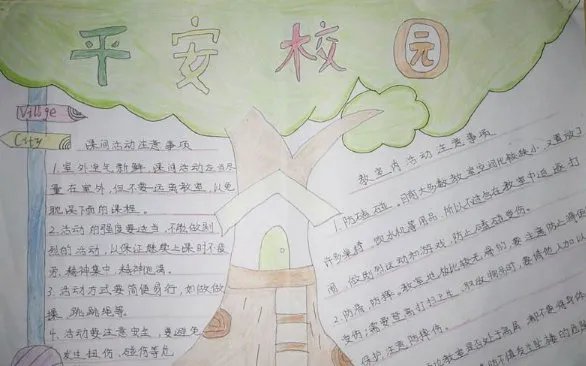 平安校园
Village
City
课间活动注意事项
1.室外空气新鲜,课间活动应当尽
量在室外,但不要远离教室,以免
耽误下面的课程。
2.活动的强度要适当,不做剧
烈的活动,以保证继续上课时不疲
劳,精神集中,精神饱满。
3.活动方式要简便易行,如做做
操、跳跳绳等。
4.活动要注意安全,要避免
发生扭伤,碰伤等危
教室内活动注意事项
1.防磕碰。目前大多数教室空间比较狭小,又置放了
许多桌椅、饮水机等用品,所以不应在教室中追逐打
闹,做剧烈运动和游戏,防止磕碰受伤。
2.防滑、防摔。教室地板比较光滑的,要注意防止滑倒
受伤;需要登高打扫卫生、取放物品时,要请他人加以
保护,注意防摔伤。
教室是否处于高层,都不要将身体